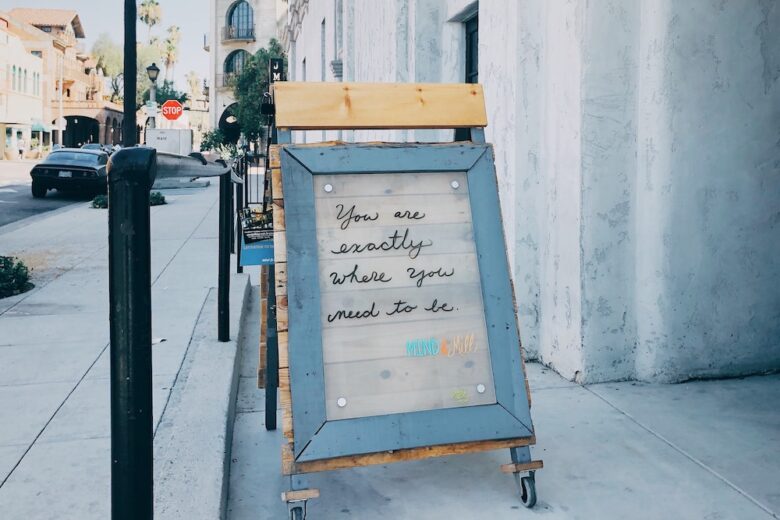 STOP
You are
exactly
where you
need to be.
MIND & Mill